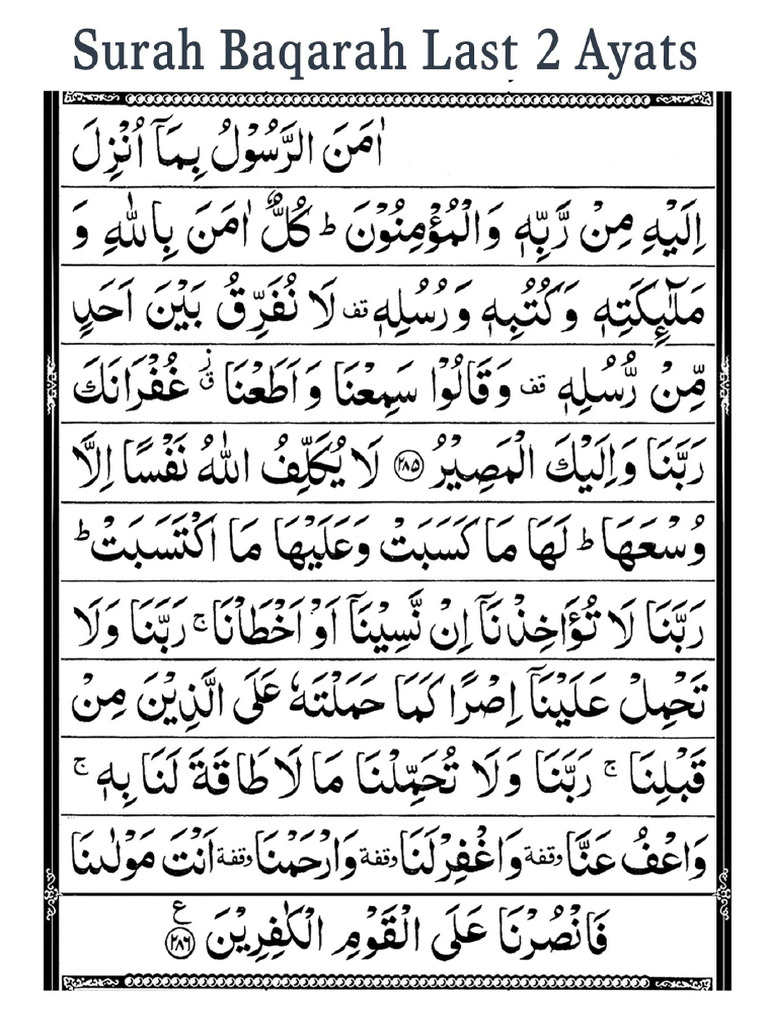 Surah Baqarah Last 2 Ayats
اٰمَنَ الرَّسُوْلُ بِمَاۤ اُنْزِلَ
اِلَيْهِ مِنْ رَّبِّهٖ وَالْمُؤْمِنُوْنَ ؕ كُلٌّ اٰمَنَ بِاللّٰهِ وَ
مَلٰٓئِكَتِهٖ وَكُتُبِهٖ وَرُسُلِهٖ قف لَا نُفَرِّقُ بَيْنَ اَحَدٍ
مِّنْ رُّسُلِهٖ قف وَقَالُوْا سَمِعْنَا وَاَطَعْنَا ز ق غُفْرَانَكَ
رَبَّنَا وَاِلَيْكَ الْمَصِيْرُ ۝٢٨٥ لَا يُكَلِّفُ اللّٰهُ نَفْسًا اِلَّا
وُسْعَهَا ؕ لَهَا مَا كَسَبَتْ وَعَلَيْهَا مَا اكْتَسَبَتْ ؕ
رَبَّنَا لَا تُؤَاخِذْنَاۤ اِنْ نَّسِيْنَاۤ اَوْ اَخْطَاْنَا ۚ رَبَّنَا وَلَا
تَحْمِلْ عَلَيْنَاۤ اِصْرًا كَمَا حَمَلْتَهٗ عَلَى الَّذِيْنَ مِنْ
قَبْلِنَا ۚ رَبَّنَا وَلَا تُحَمِّلْنَا مَا لَا طَاقَةَ لَنَا بِهٖ ۚ
وَاعْفُ عَنَّا وقفة وَاغْفِرْ لَنَا وقفة وَارْحَمْنَا وقفة اَنْتَ مَوْلٰىنَا
فَانْصُرْنَا عَلَى الْقَوْمِ الْكٰفِرِيْنَ ۝٢٨٦ ع